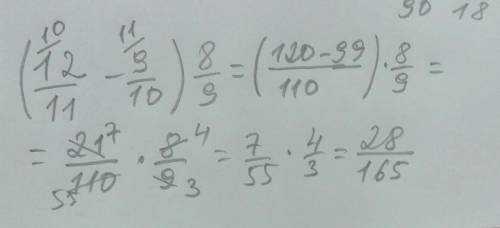 90 18
(¹⁰12/11 - ¹¹9/10) 8/9 = ((120-99)/110) · 8/9 =
= 21⁷/₅₅110 · 8⁴/9₃ = 7/55 · 4/3 = 28/165